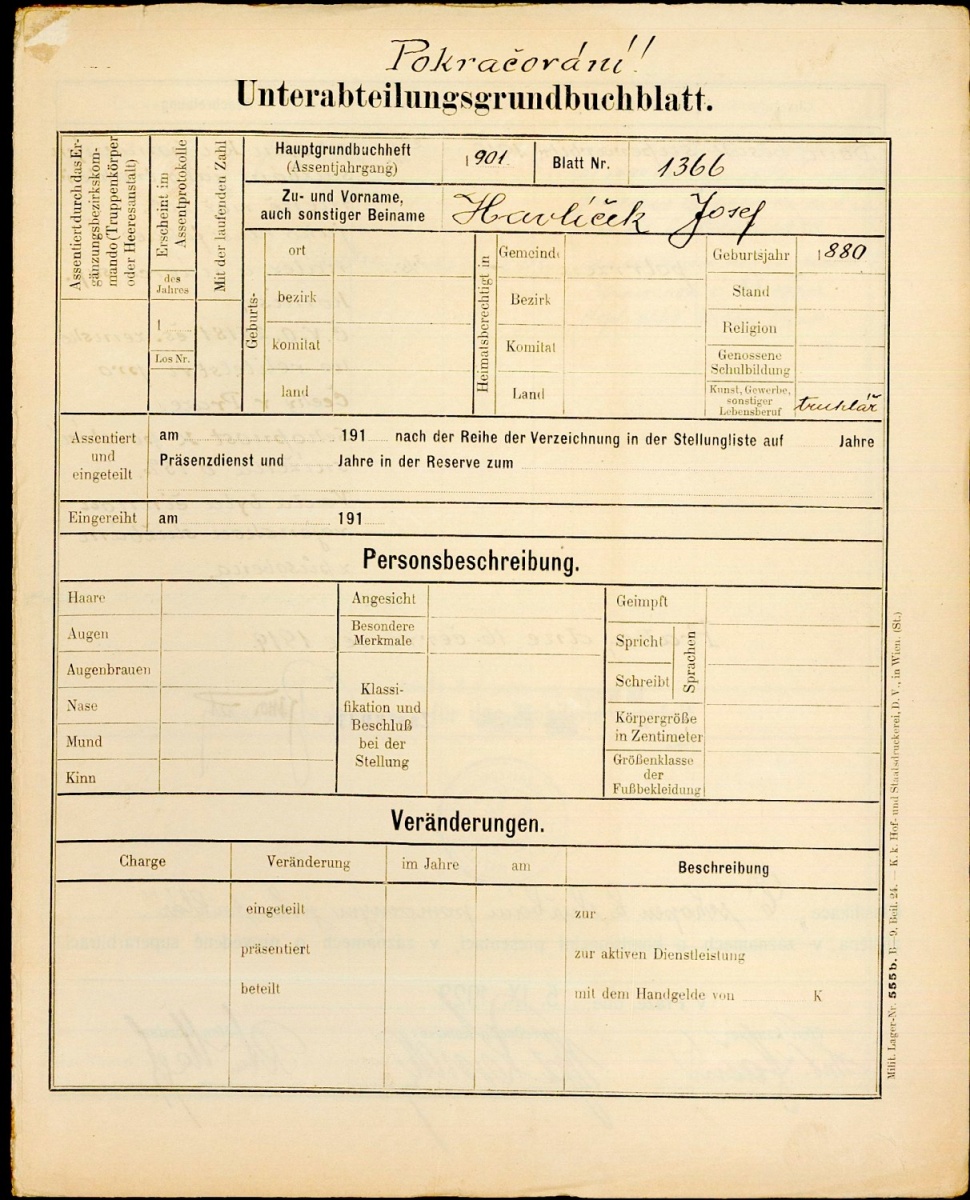 Pokračování!
Unterabteilungsgrundbuchblatt.
Assentiert durch das Er-
gänzungsbezirkskom-
mando (Truppenkörper
oder Heeresanstalt)
Erscheint im
Assentprotokolle
des
Jahres
1
Los Nr.
Mit der laufenden Zahl
Hauptgrundbuchheft
(Assentjahrgang)
1901
Blatt Nr.
1366
Zu- und Vorname,
auch sonstiger Beiname
Havlíček Josef
Geburts-
ort
bezirk
komitat
land
Heimatsberechtigt in
Gemeinde
Bezirk
Komitat
Land
Geburtsjahr
1880
Stand
Religion
Genossene
Schulbildung
Kunst, Gewerbe,
sonstiger
Lebensberuf
truhlář
Assentiert
und
eingeteilt
am 191 nach der Reihe der Verzeichnung in der Stellungliste auf Jahre
Präsenzdienst und Jahre in der Reserve zum
Eingereiht am 191
Personsbeschreibung.
Haare
Augen
Augenbrauen
Nase
Mund
Kinn
Angesicht
Besondere
Merkmale
Klassi-
fikation und
Beschluß
bei der
Stellung
Geimpft
Spricht
Schreibt
Sprachen
Körpergröße
in Zentimeter
Größenklasse
der
Fußbekleidung
Veränderungen.
Charge Veränderung im Jahre am Beschreibung
eingeteilt zur
präsentiert zur aktiven Dienstleistung
beteilt mit dem Handgelde von K
Milit. Lager-Nr. 555b. B—9, Beil. 24. — K. k. Hof- und Staatsdruckerei, D. V., in Wien. (St.)